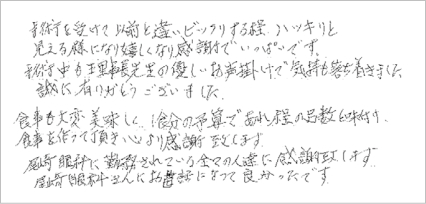 手術を受けて以前と違いビックリする程、ハッキリと
見える様になり嬉しくなり感謝でいっぱいです。
手術中も理事長先生の優しいお声掛けで気持も落ち着きました
誠に有りがとうございました。
食事も大変美味しく、1食分の予算であれ程の品数と味付け
食事を作って頂き心より感謝致します。
尾﨑眼科に勤務されている全ての人達に感謝致します
尾﨑眼科さんにお世話になって良かったです